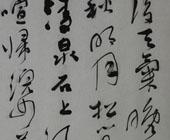 後天氣晚
秋明月松
清泉石上流
喧歸浣女